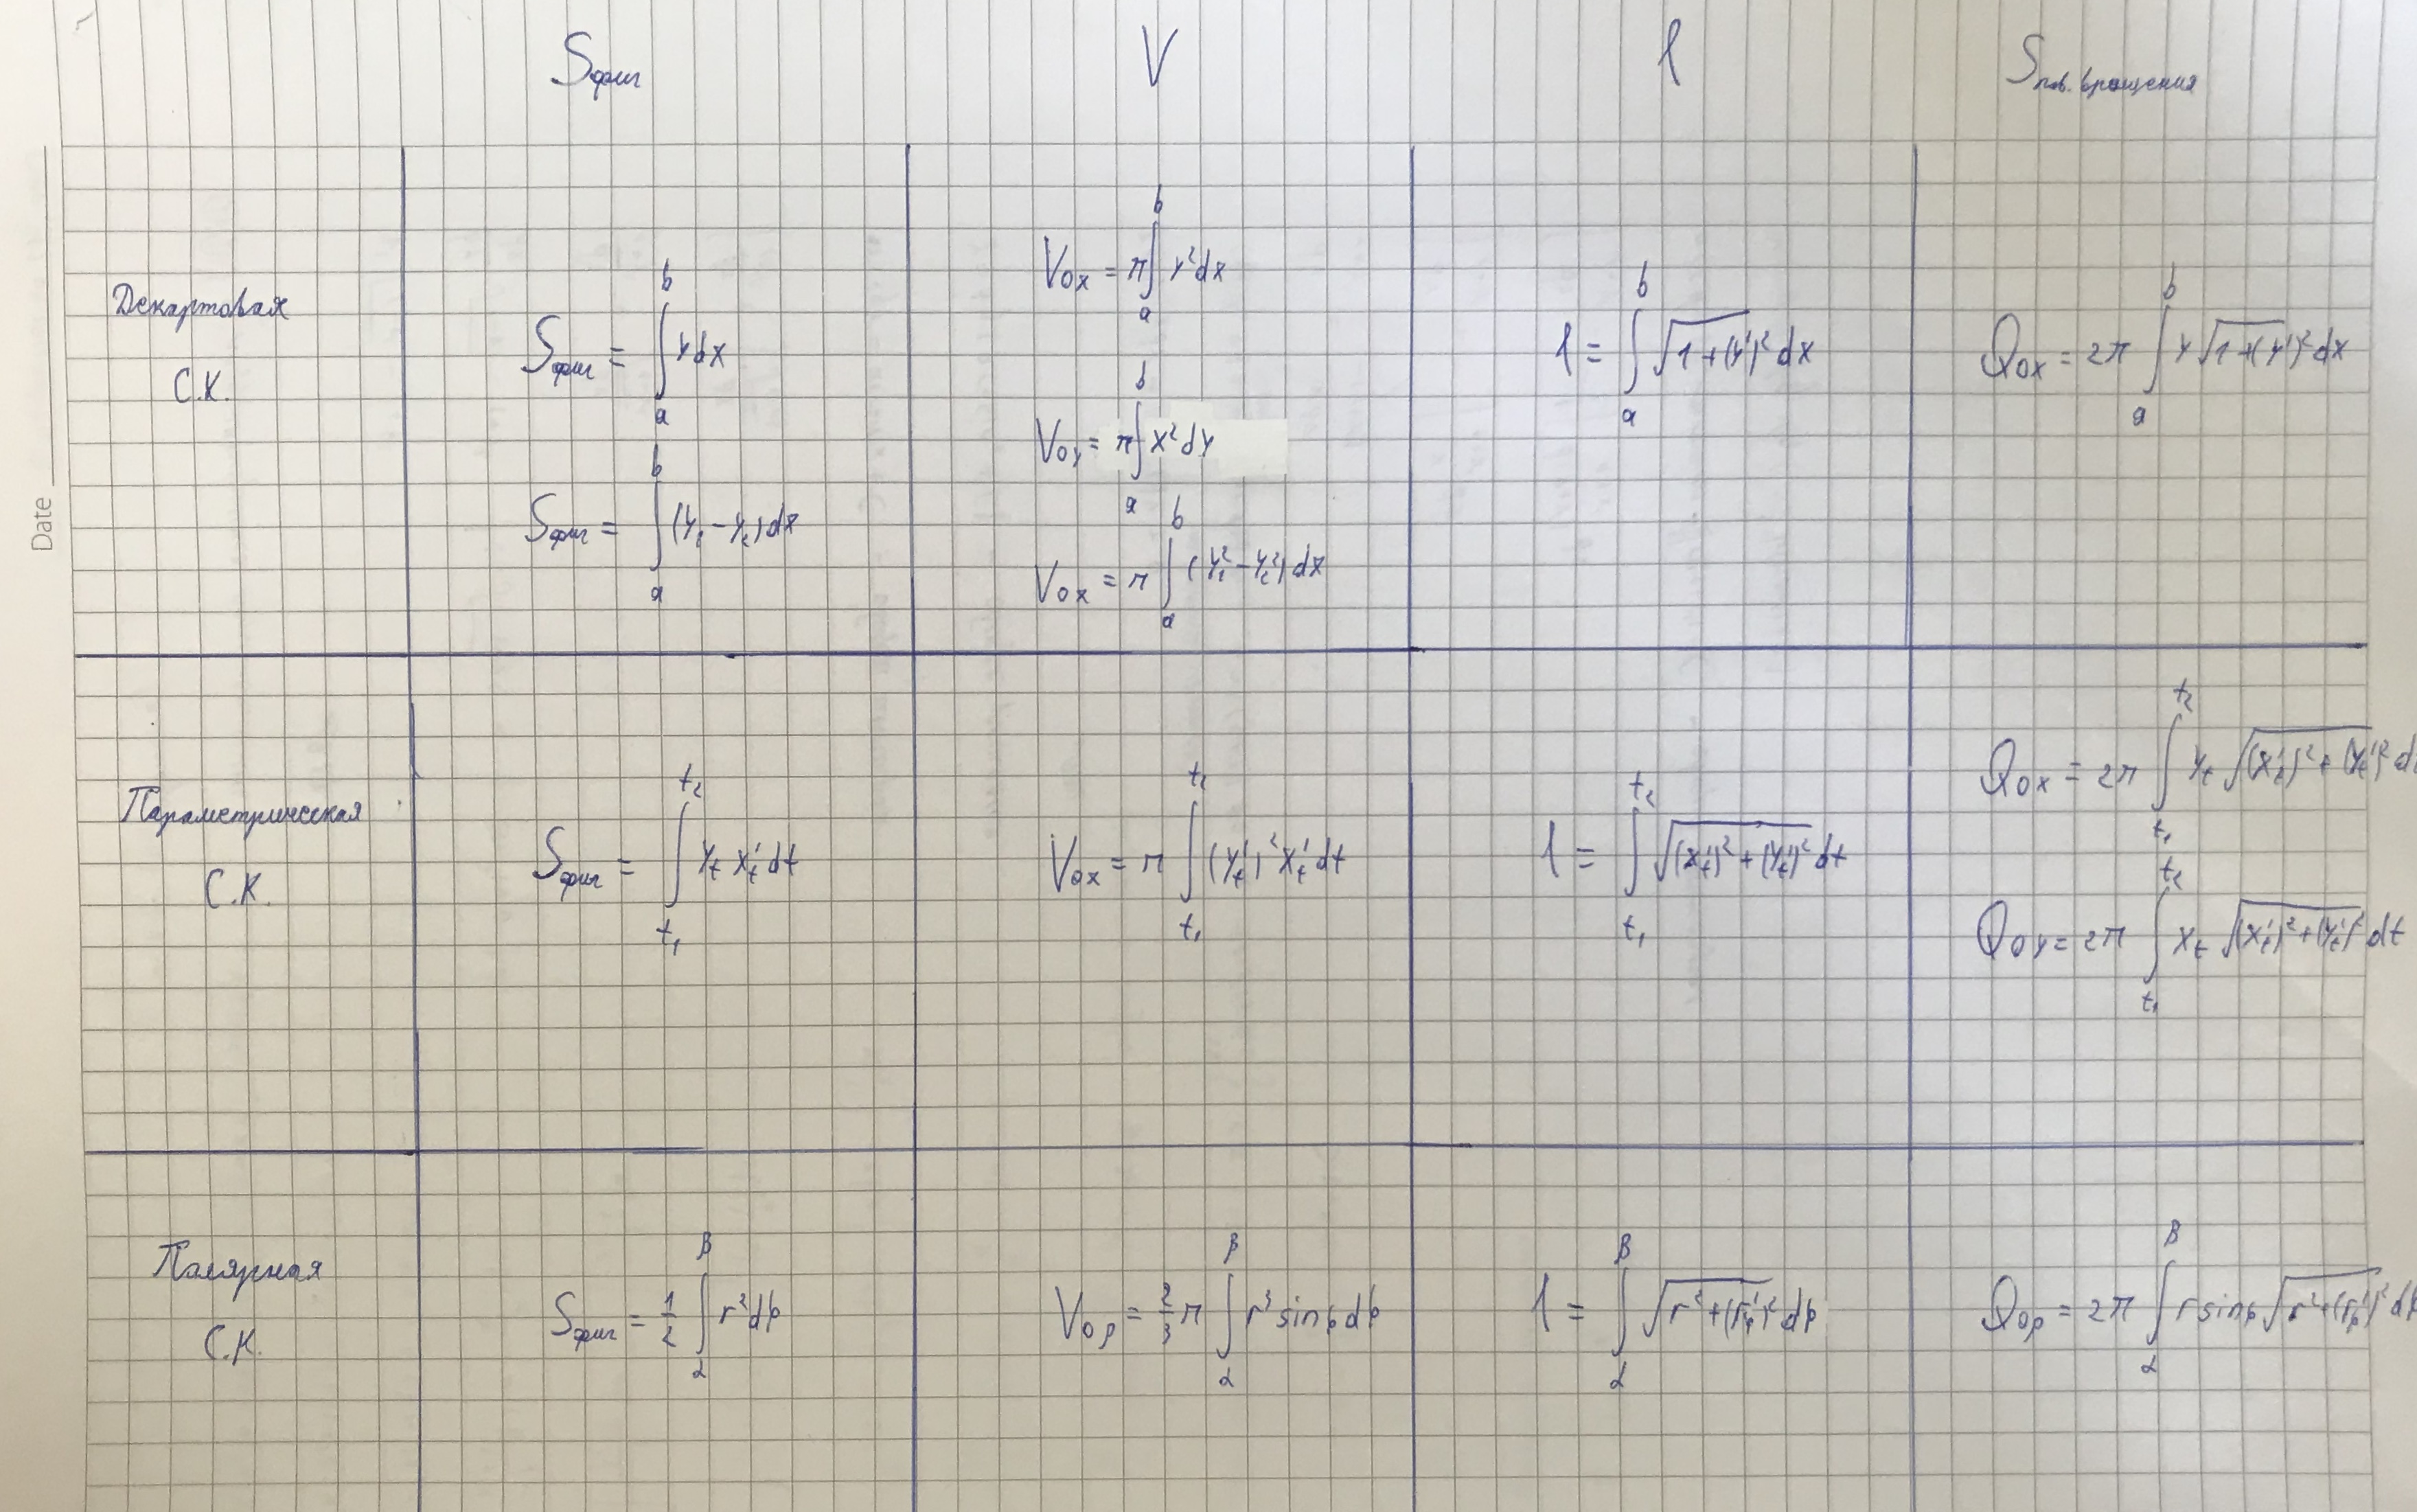 Date
Sфиг V l Sпов. вращения
Декартовая
С.К.
Sфиг = ∫ₐᵇ y dx
Sфиг = ∫ₐᵇ (y₁ − y₂) dx
Vox = π ∫ₐᵇ y² dx
Voy = π ∫ₐᵇ x² dy
Vox = π ∫ₐᵇ (y₁² − y₂²) dx
l = ∫ₐᵇ √(1 + (y')²) dx
Qox = 2π ∫ₐᵇ y √(1 + (y')²) dx
Параметрическая
С.К.
Sфиг = ∫_{t₁}^{t₂} y_t x'_t dt
Vox = π ∫_{t₁}^{t₂} (y'_t)² x'_t dt
l = ∫_{t₁}^{t₂} √((x'_t)² + (y'_t)²) dt
Qox = 2π ∫_{t₁}^{t₂} y_t √((x'_t)² + (y'_t)²) d
Qoy = 2π ∫_{t₁}^{t₂} x_t √((x'_t)² + (y'_t)²) dt
Полярная
С.К.
Sфиг = 1/2 ∫_α^β r² dφ
Voρ = 2/3 π ∫_α^β r³ sinφ dφ
l = ∫_α^β √(r² + (r'_φ)²) dφ
Qoρ = 2π ∫_α^β r sinφ √(r² + (r'_φ)²) dφ